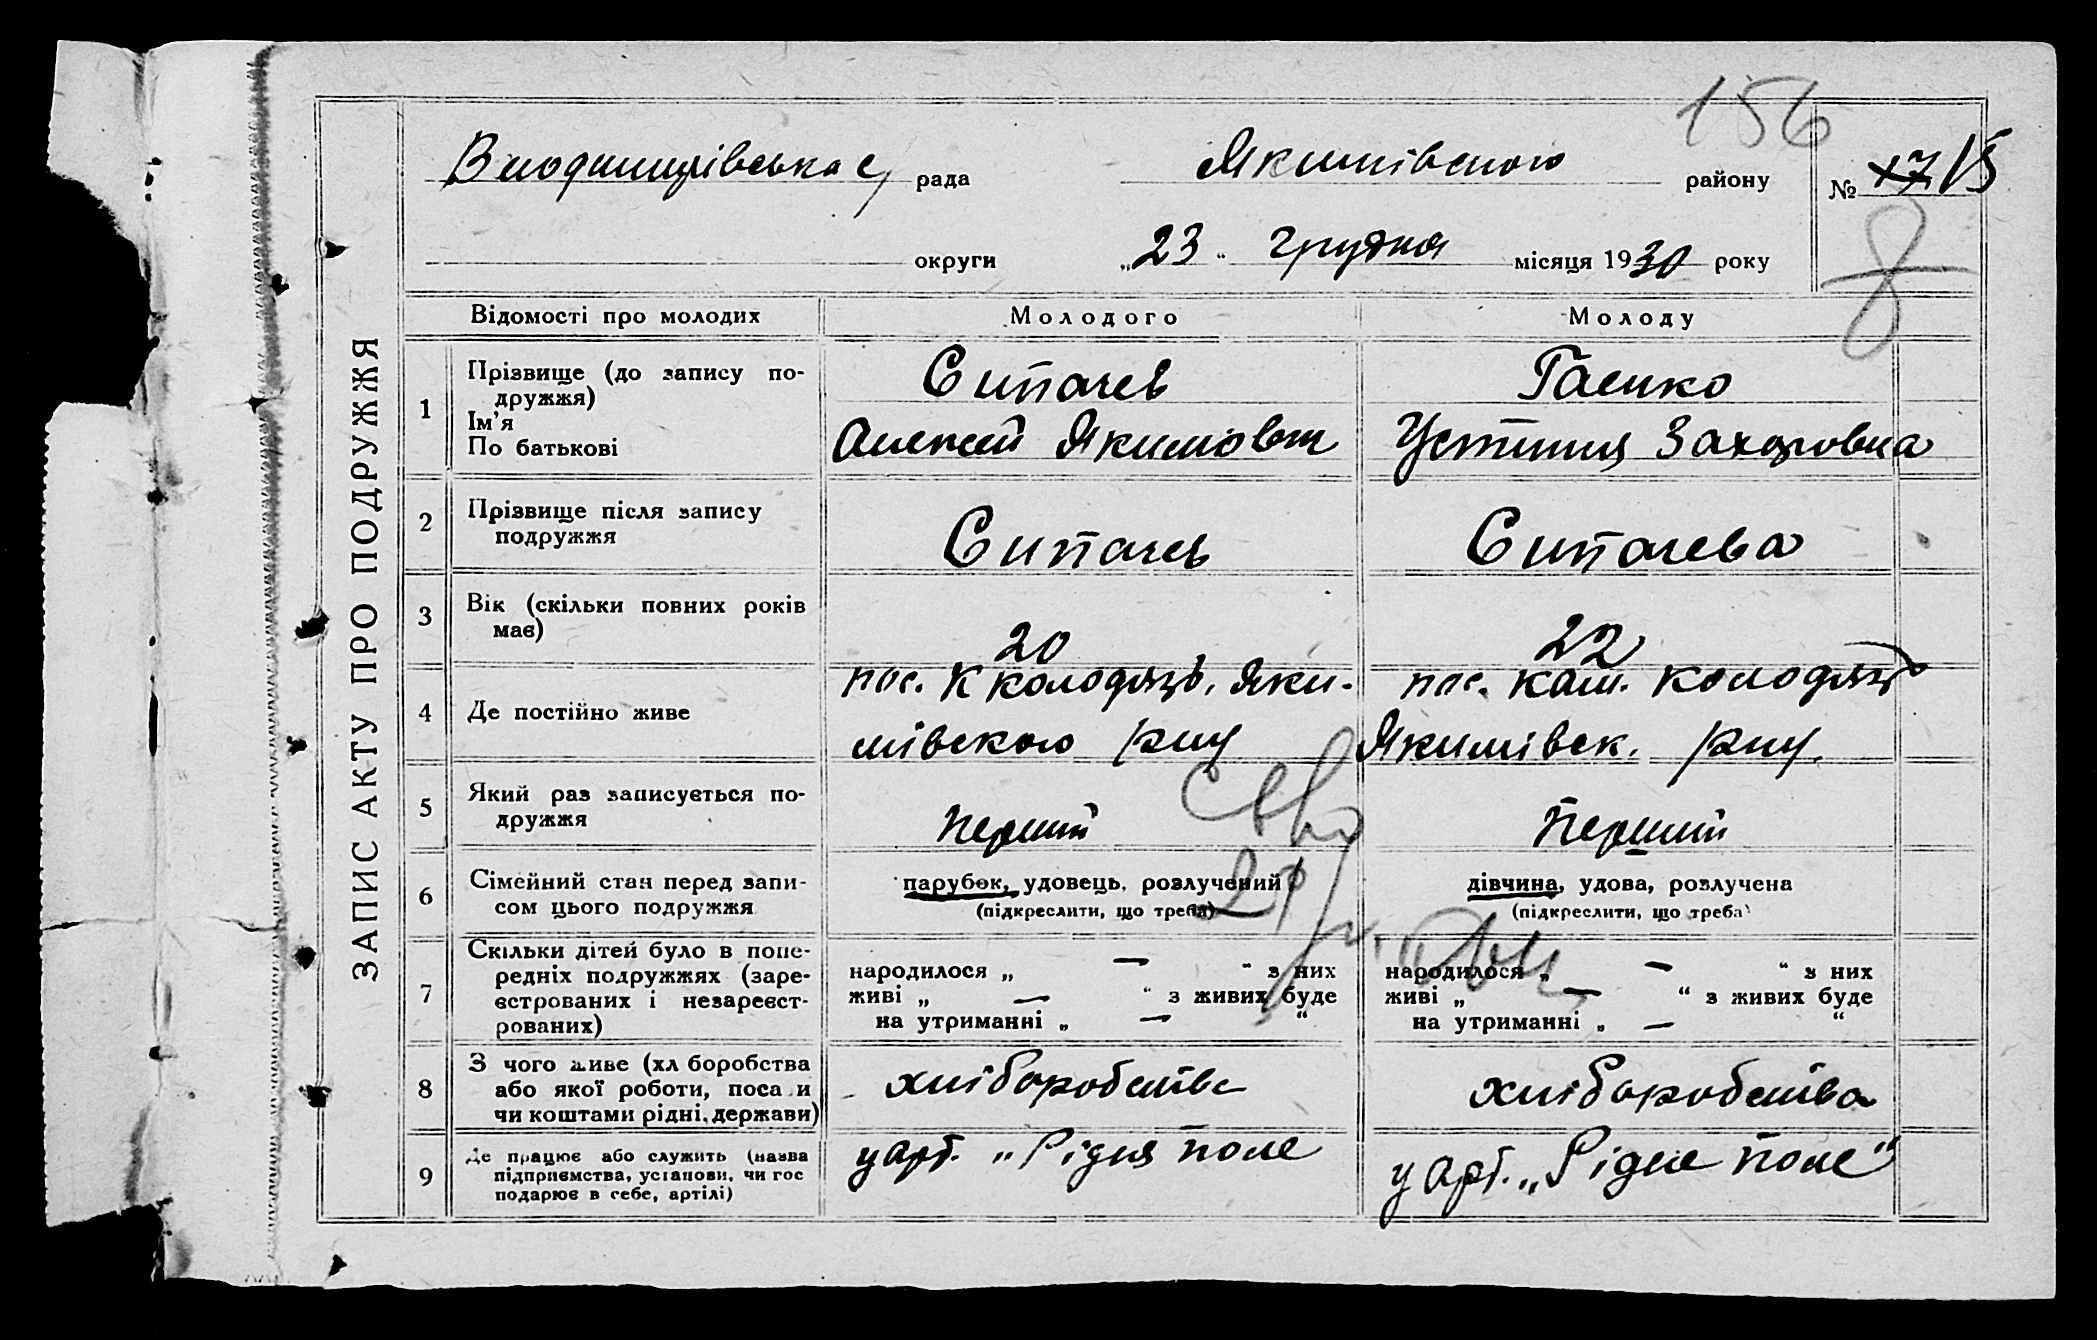 156
Володимирівська с, рада Якимівского району № 17 15
округи „23“ грудня місяця 1930 року
8
ЗАПИС АКТУ ПРО ПОДРУЖЖЯ
Відомості про молодих Молодого Молоду
1 Прізвище (до запису по-
дружжя)
Ім’я
По батькові
Сипачев
Алексей Якимович
Гаенко
Устиния Захаровна
2 Прізвище після запису
подружжя
Сипачев
Сипачева
3 Вік (скільки повних років
має)
20
22
4 Де постійно живе
пос. К колодязь, Яки-
мівского р-ну
пос. Кам. колодязь
Якимівск. р-ну.
5 Який раз записується по-
дружжя
перший
перший
6 Сімейний стан перед запи-
сом цього подружжя
парубок, удовець, розлучений
(підкреслити, що треба)
дівчина, удова, розлучена
(підкреслити, що треба)
7 Скільки дітей було в попе-
редніх подружжях (заре-
єстрованих і незареєст-
рованих)
народилося „ — “ з них
живі „ — “ з живих буде
на утриманні „ — “
народилося „ — “ з них
живі „ — “ з живих буде
на утриманні „ — “
8 З чого живе (хл боробства
або якої роботи, поса и
чи коштами рідні, держави)
хліборобство
хліборобства
9 Де працює або служить (назва
підприємства, установи, чи гос
подарює в себе, артілі)
у арт. „Рідня поле
у арт. „Рідне поле“